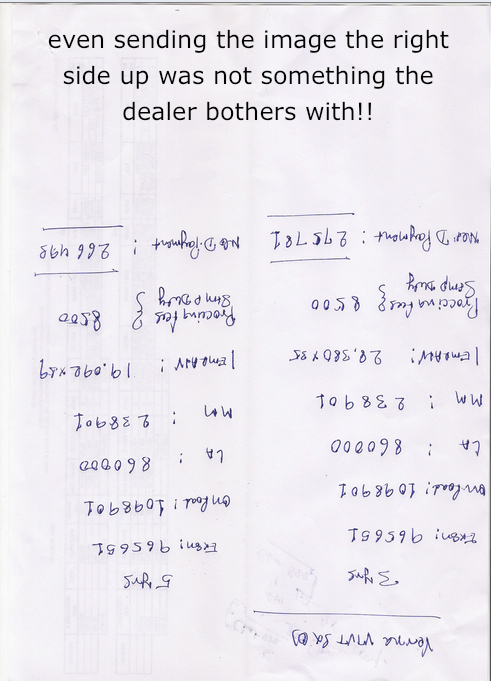 even sending the image the right
side up was not something the
dealer bothers with!!
Verna VTVT Sx (O)
3 yrs
Exsm: 965651
On Road: 1098901
LA : 860000
MM : 238901
1 Em Adv: 28,380 x 35
Proccing fees } 8500
Stmp Duty
Net D.Payment : 275781
5 yrs
Exsm: 965651
On Road: 1098901
LA : 860000
MM : 238901
1 Em Adv : 19,092 x 59
Proccing fees } 8500
Stmp Duty
Net D.Payment : 266493